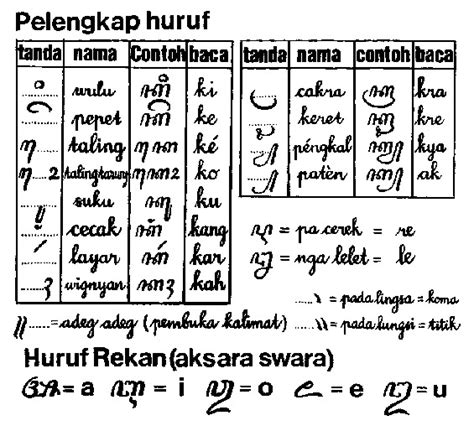 Pelengkap huruf
tanda nama Contoh baca
ꦶ wulu ꦏꦶ ki
ꦼ pepet ꦏꦼ ke
ꦺ taling ꦏꦺ ké
ꦺꦴ talingtarung ꦏꦺꦴ ko
ꦸ suku ꦏꦸ ku
ꦁ cecak ꦏꦁ kang
ꦂ layar ꦏꦂ kar
ꦃ wignyan ꦏꦃ kah
tanda nama contoh baca
ꦿ cakra ꦏꦿ kra
ꦽ keret ꦏꦽ kre
ꦾ péngkal ꦏꦾ kya
꧀ patèn ꦏ꧀ ak
ꦉ = pa cerek = re
ꦊ = nga lelet = le
......꧈ = pada lingsa = koma
꧋......= adeg adeg (pembuka kalimat)
......꧉ = pada lungsi = titik
Huruf Rekan (aksara swara)
ꦄ = a ꦆ = i ꦎ = o ꦌ = e ꦈ = u